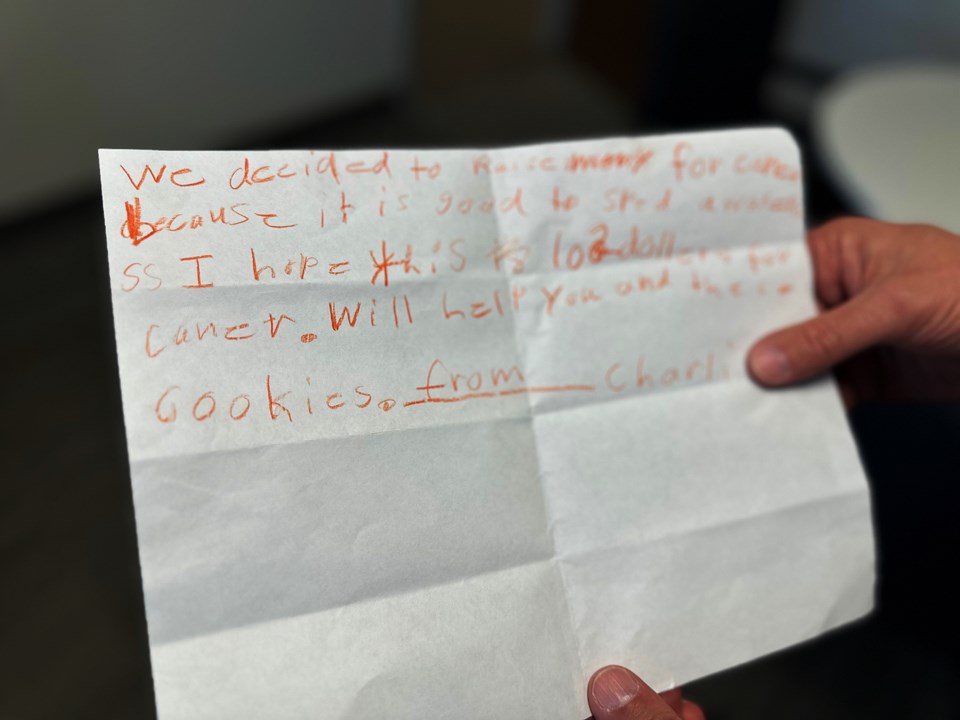 We decided to Raise money for cancer
because it is good to spred awarene
ss I hope this is 102 dollars for
cancer. Will help you and these
Cookies. from Charli